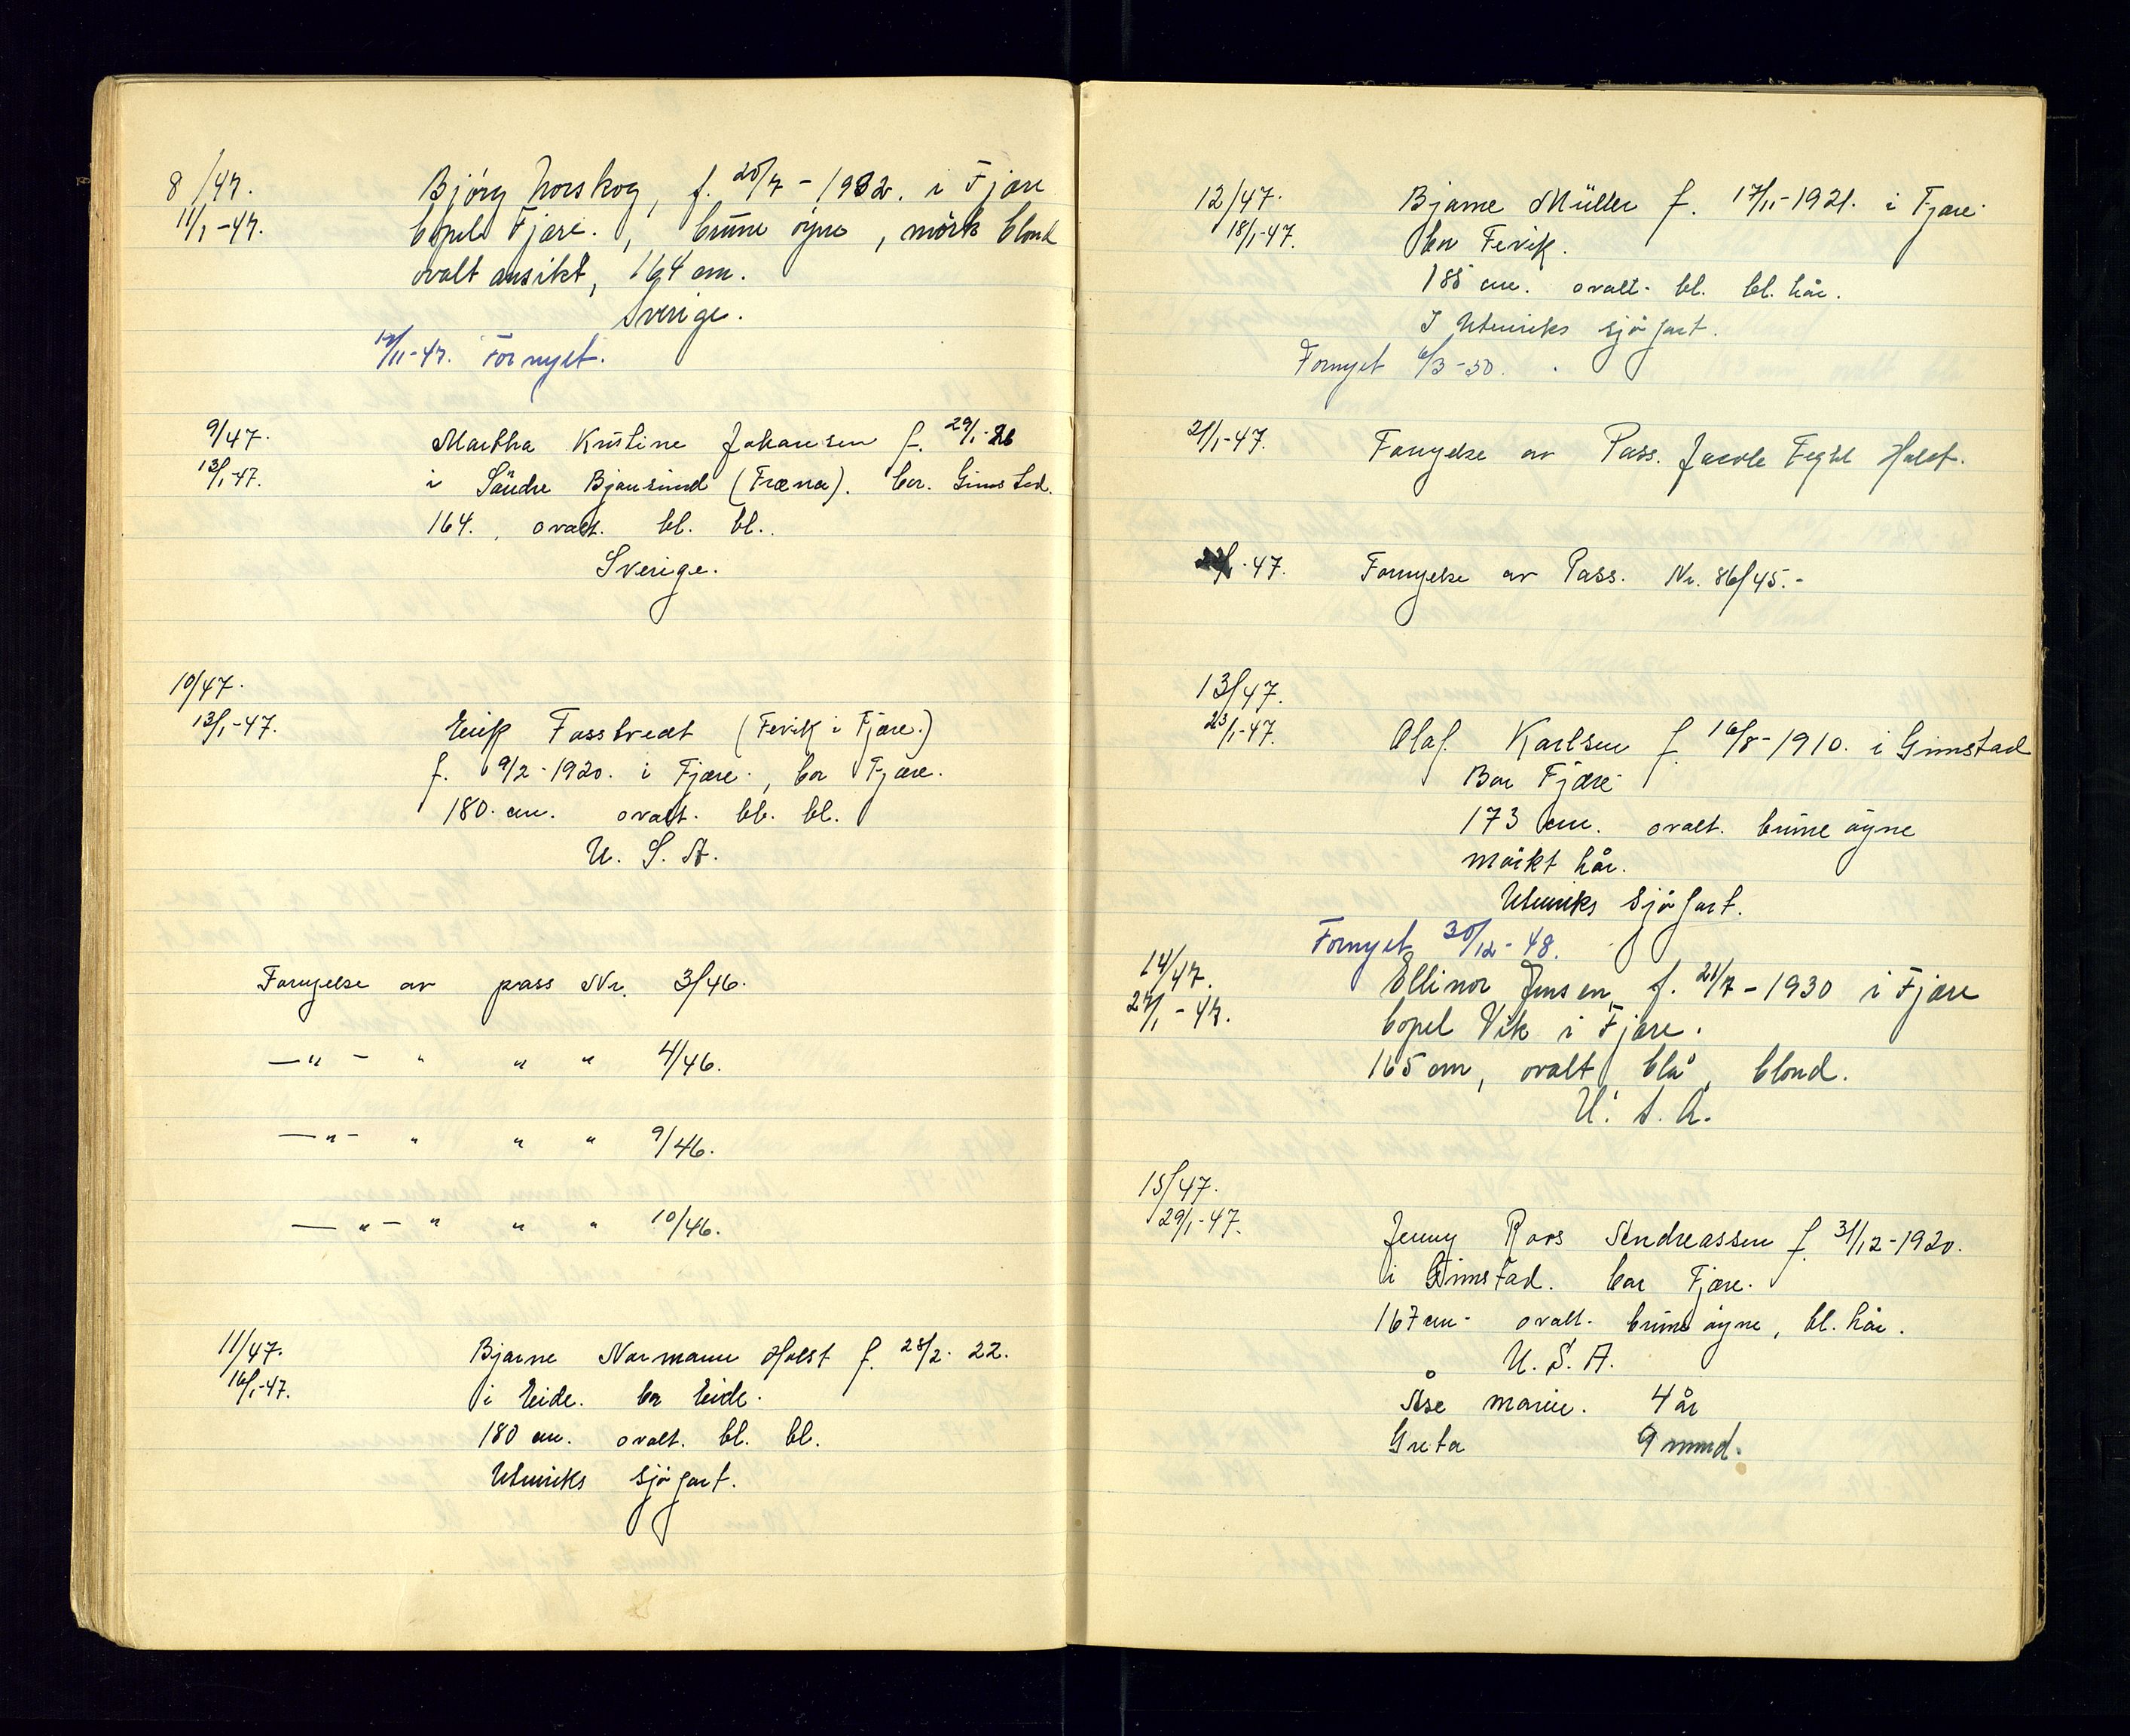 8/47. Bjørg Norskog, f. 20/7 - 1932. i Fjære
11/1-47. bopel Fjære., brune øyne, mørk blond
ovalt ansikt, 164 cm.
Sverige.
12/11-47. Fornyet.
9/47. Martha Kristine Johansen f. 29/1-26
13/1-47. i Söndre Bjørnsund (Fræna). bor. Grimstad.
164., ovalt. bl. bl..
Sverige.
10/47.
13/1-47. Erik Fosstvedt (Fevik i Fjære.)
f. 9/2-1920. i Fjære., bor Fjære.
180. cm. ovalt. bl. bl.
U. S. A.
Fornyelse av pass Nr. 3/46.
—"— " " " 4/46.
—"— " " " 9/46.
—"— " " " 10/46.
11/47. Bjarne Normann Holst f. 28/2-22.
16/1-47. i Eide. bor Eide.
180 cm. ovalt. bl. bl.
Utenriks sjøfart.
12/47. Bjarne Müller f. 17/11-1921. i Fjære
18/1-47. bor Fevik.
185 cm. ovalt. bl. bl. hår.
I Utenriks sjøfart.
Fornyet 6/3-50.
21/1-47. Fornyelse av Pass. Holst.
47. Fornyelse av Pass. Nr. 86/45.-
13/47.
23/1-47. Olaf. Karlsen f. 16/8-1910. i Grimstad
Bor Fjære
173 cm. ovalt. brune öyne
mörkt hår.
Utenriks sjøfart.
Fornyet 30/12-48.
14/47. Ellinor Jensen, f. 21/7-1930 i Fjære
27/1-47. bopel Vik i Fjære.
165 cm, ovalt, blå, blond.
U. S. A.
15/47.
29/1-47. Jenny Roos Andreassen f. 31/12-1920.
i Grimstad. bor Fjære.
167 cm. ovalt. brune öyne, bl. hår.
U. S. A.
Åse marie. 4 år
Greta 9 mnd.